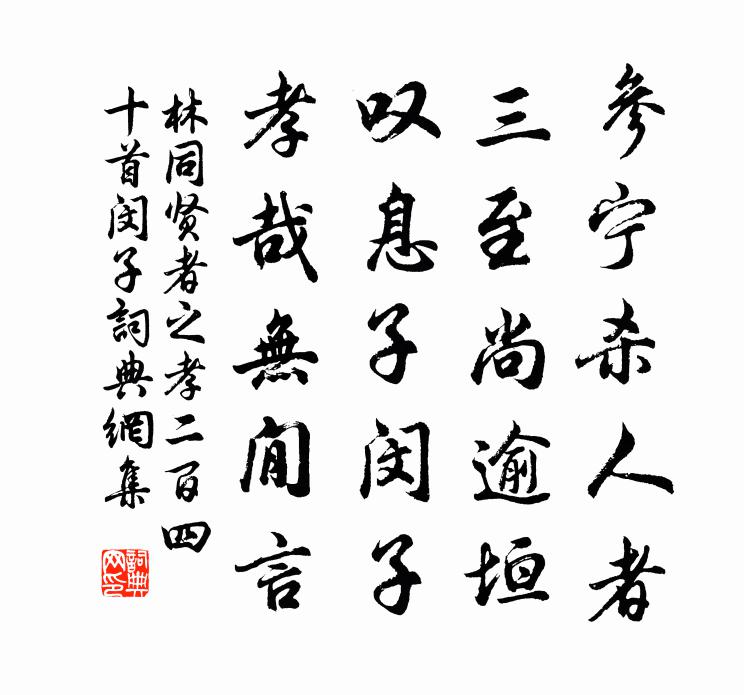 参宁杀人者
三至尚逾垣
叹息子闵子
孝哉無間言
林同贤者之孝二百四
十首闵子詞典網集
詞典
网印